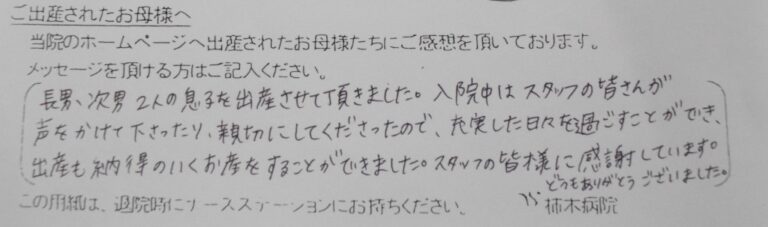 ご出産されたお母様へ
当院のホームページへ出産されたお母様たちにご感想を頂いております。
メッセージを頂ける方はご記入ください。
長男、次男 2人の息子を出産させて頂きました。入院中はスタッフの皆さんが
声をかけて下さったり、親切にしてくださったので、充実した日々を過ごすことができ、
出産も納得のいくお産をすることができました。スタッフの皆様に感謝しています。
どうもありがとうございました。
この用紙は、退院時にナースステーションにお持ちください。
柿木病院